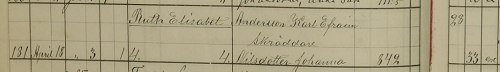 Ruth Elisabet Andersson Karl Efraim 23
Skräddare
131 April 18 " 3 1 4. 4 Nilsdotter Johanna 342 33